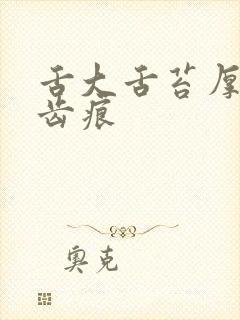 舌大舌苔厚
齿痕
奥克